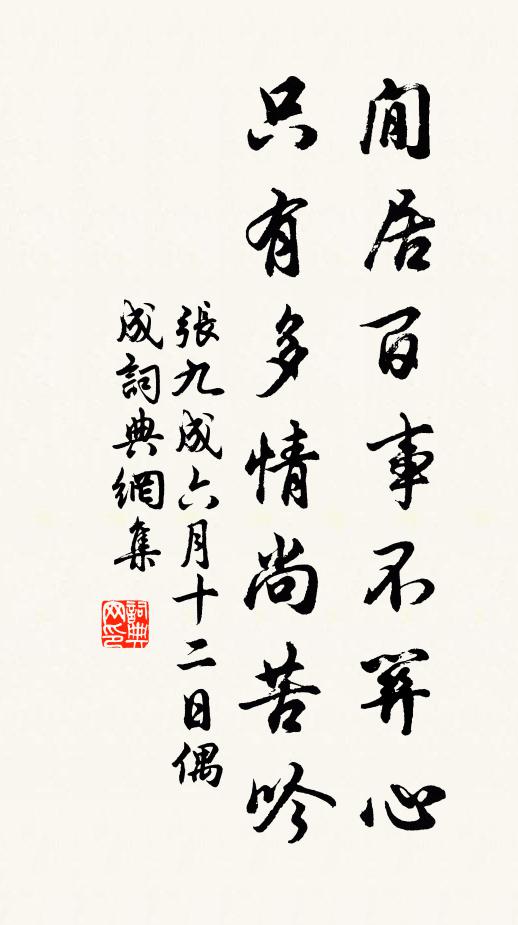 閒居百事不關心
只有多情尚苦吟
張九成六月十二日偶
成詞典網集
詞典网印